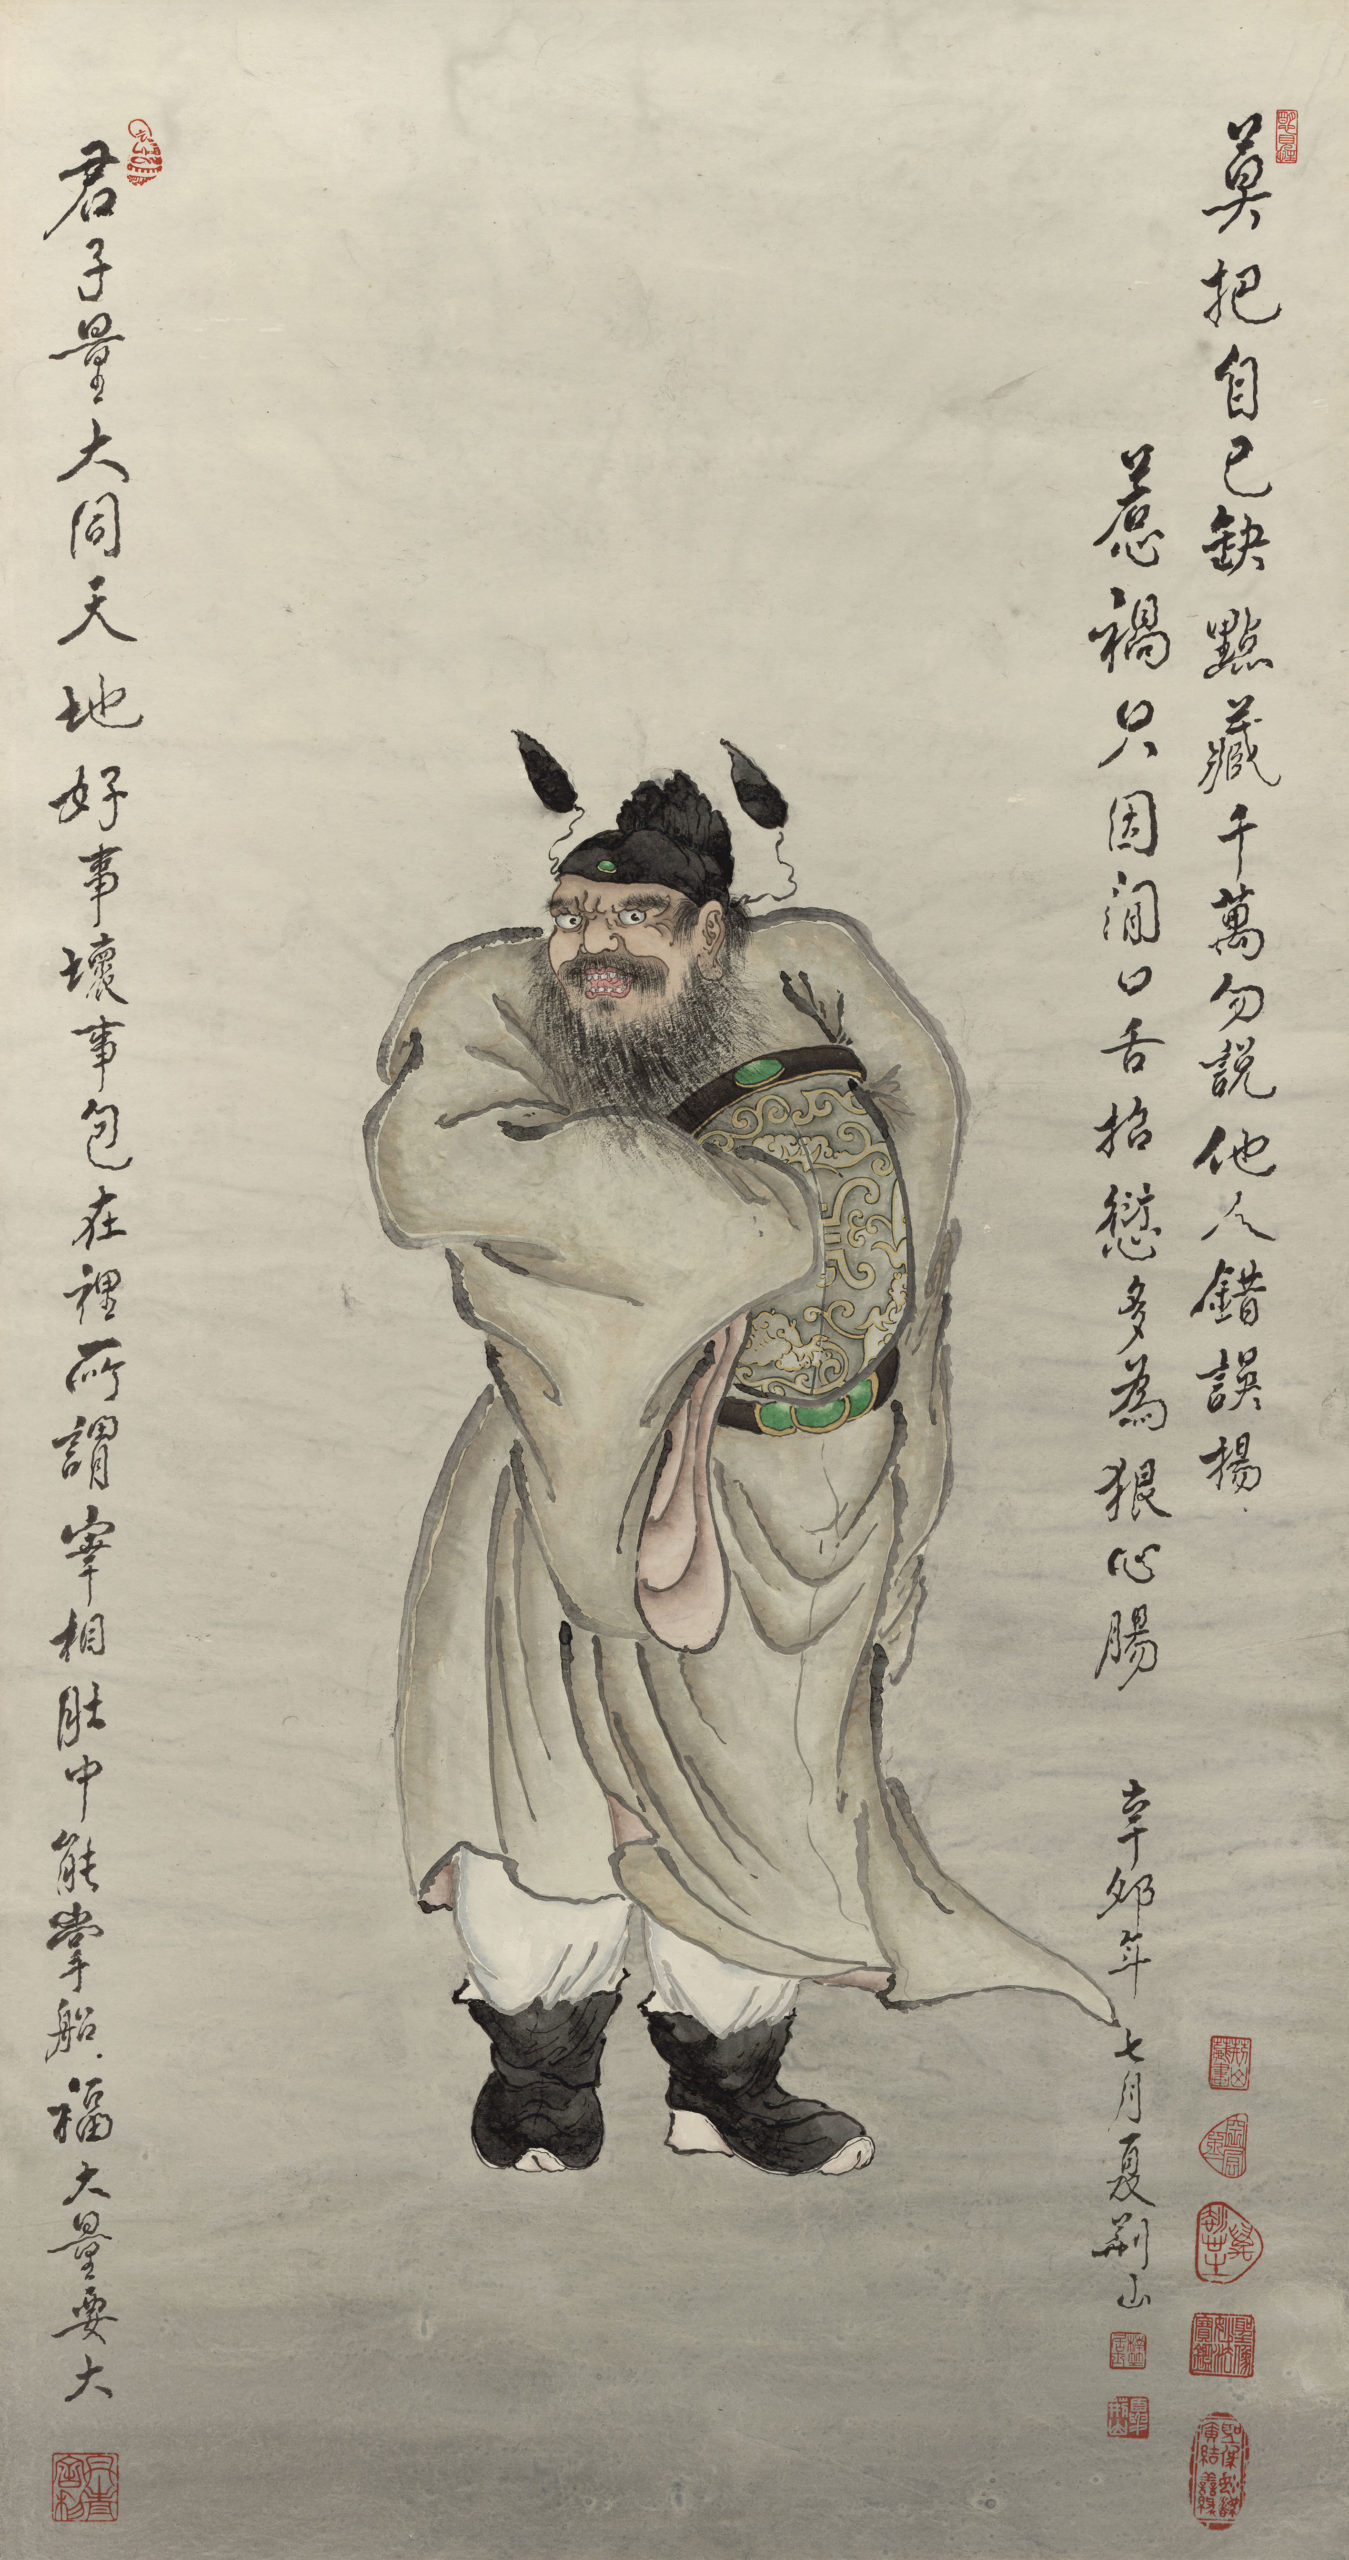 莫把自己缺點藏千萬勿說他人錯誤揚
惹禍只因閒口舌招愆多為狠心腸
辛卯年七月夏荆山
君子量大同天地好事壞事包在裡所謂宰相肚中能掌船福大量要大